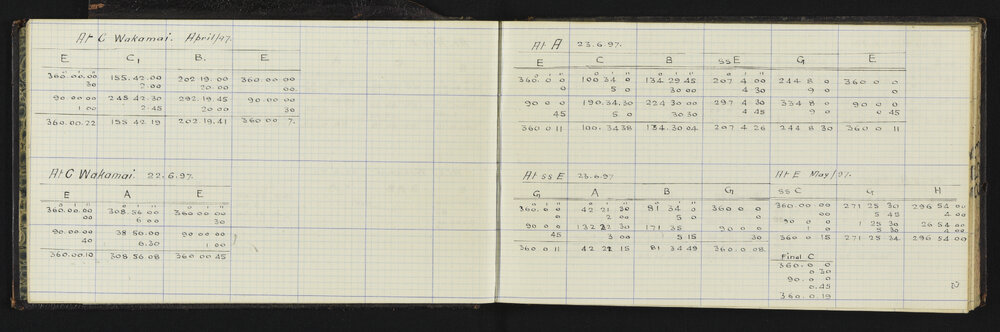 At G Wakamai. April/97.
E C₁ B. E
° ' " ° ' " ° ' " ° ' "
360.00.00 155.42.00 202 19.00 360.00 00
30 2 00 20.00 00
90.00.00 245.42.30 292.19.45 90.00.00
1 00 2.45 20 00 30
360.00.22 155 42 19 202 19.41 360 00 7.
At G Wakamai. 22.6.97.
E A E
° ' " ° ' " ° ' "
360.00.00 308.56 00 360.00 00
00 6 00 30
90.00.00 38 56.00 90.00.00
40 6.30 1 00
360.00.10 308 56 08 360 00 45
At A 23.6.97.
E C B ssE G E
° ' " ° ' " ° ' " ° ' " ° ' " ° ' "
360.0 0 100 34 0 134.29 45 207 4 00 244 8 0 360 0 0
0 5 0 30 00 4 30 9 0 0
90 0 0 190.34.30 224 30 00 297 4 30 334 8 0 90 0 0
45 5 0 30 30 4 45 9 0 0 45
360 0 11 100.34 38 134.30 04 207 4 26 244 8 30 360 0 11
At ss E 23.6.97
G A B G
° ' " ° ' " ° ' " ° ' "
360.0 0 42 21 30 81 34 0 360 0 0
0 2 00 5 0 0
90 0 0 132 22 30 171 35 90 0 0
45 3 00 5 15 30
360 0 11 42 22 15 81 34 49 360.0 08
At E May/97.
ss C G H
360.00 00 271 25 30 296 54 00
00 5 45 4 00
90 0 0 1 25 30 26 54 00
1 0 5 30 4 00
360 0 15 271 25 34 296 54 00
Final C
360.0 0
0 30
90.0 0
0.45
360.0.19